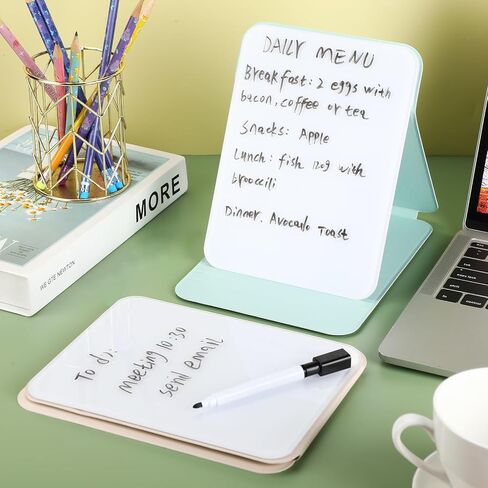 DAILY MENU
Breakfast: 2 eggs with
bacon, coffee or tea
Snacks: Apple
Lunch: fish 120g with
broccili
Dinner. Avocado Toast
MORE
WE GTE NEWTON
To do:
Meeting 10:30
send email